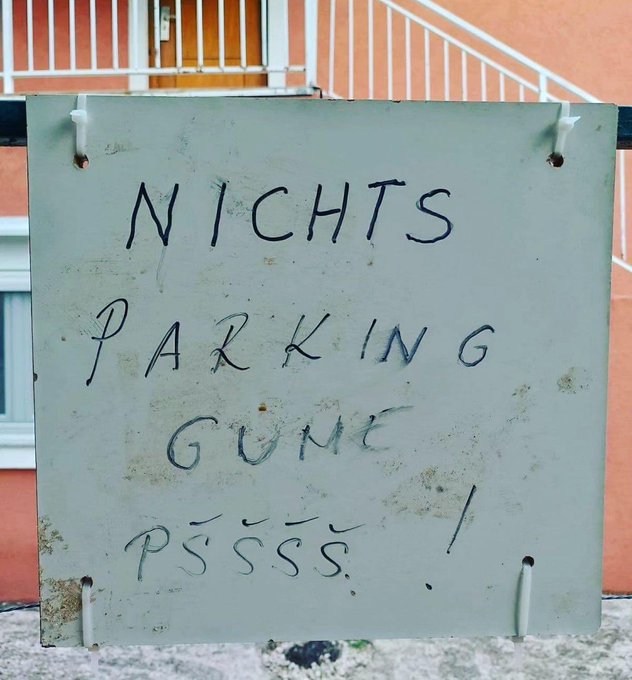 NICHTS
PARKING
GUME
PŠŠŠŠ !